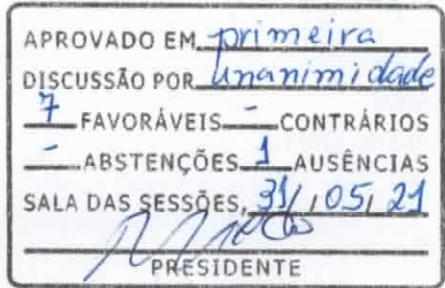 APROVADO EM primeira
DISCUSSÃO POR unanimidade
7 FAVORÁVEIS - CONTRÁRIOS
- ABSTENÇÕES 1 AUSÊNCIAS
SALA DAS SESSÕES, 31/05/21
PRESIDENTE